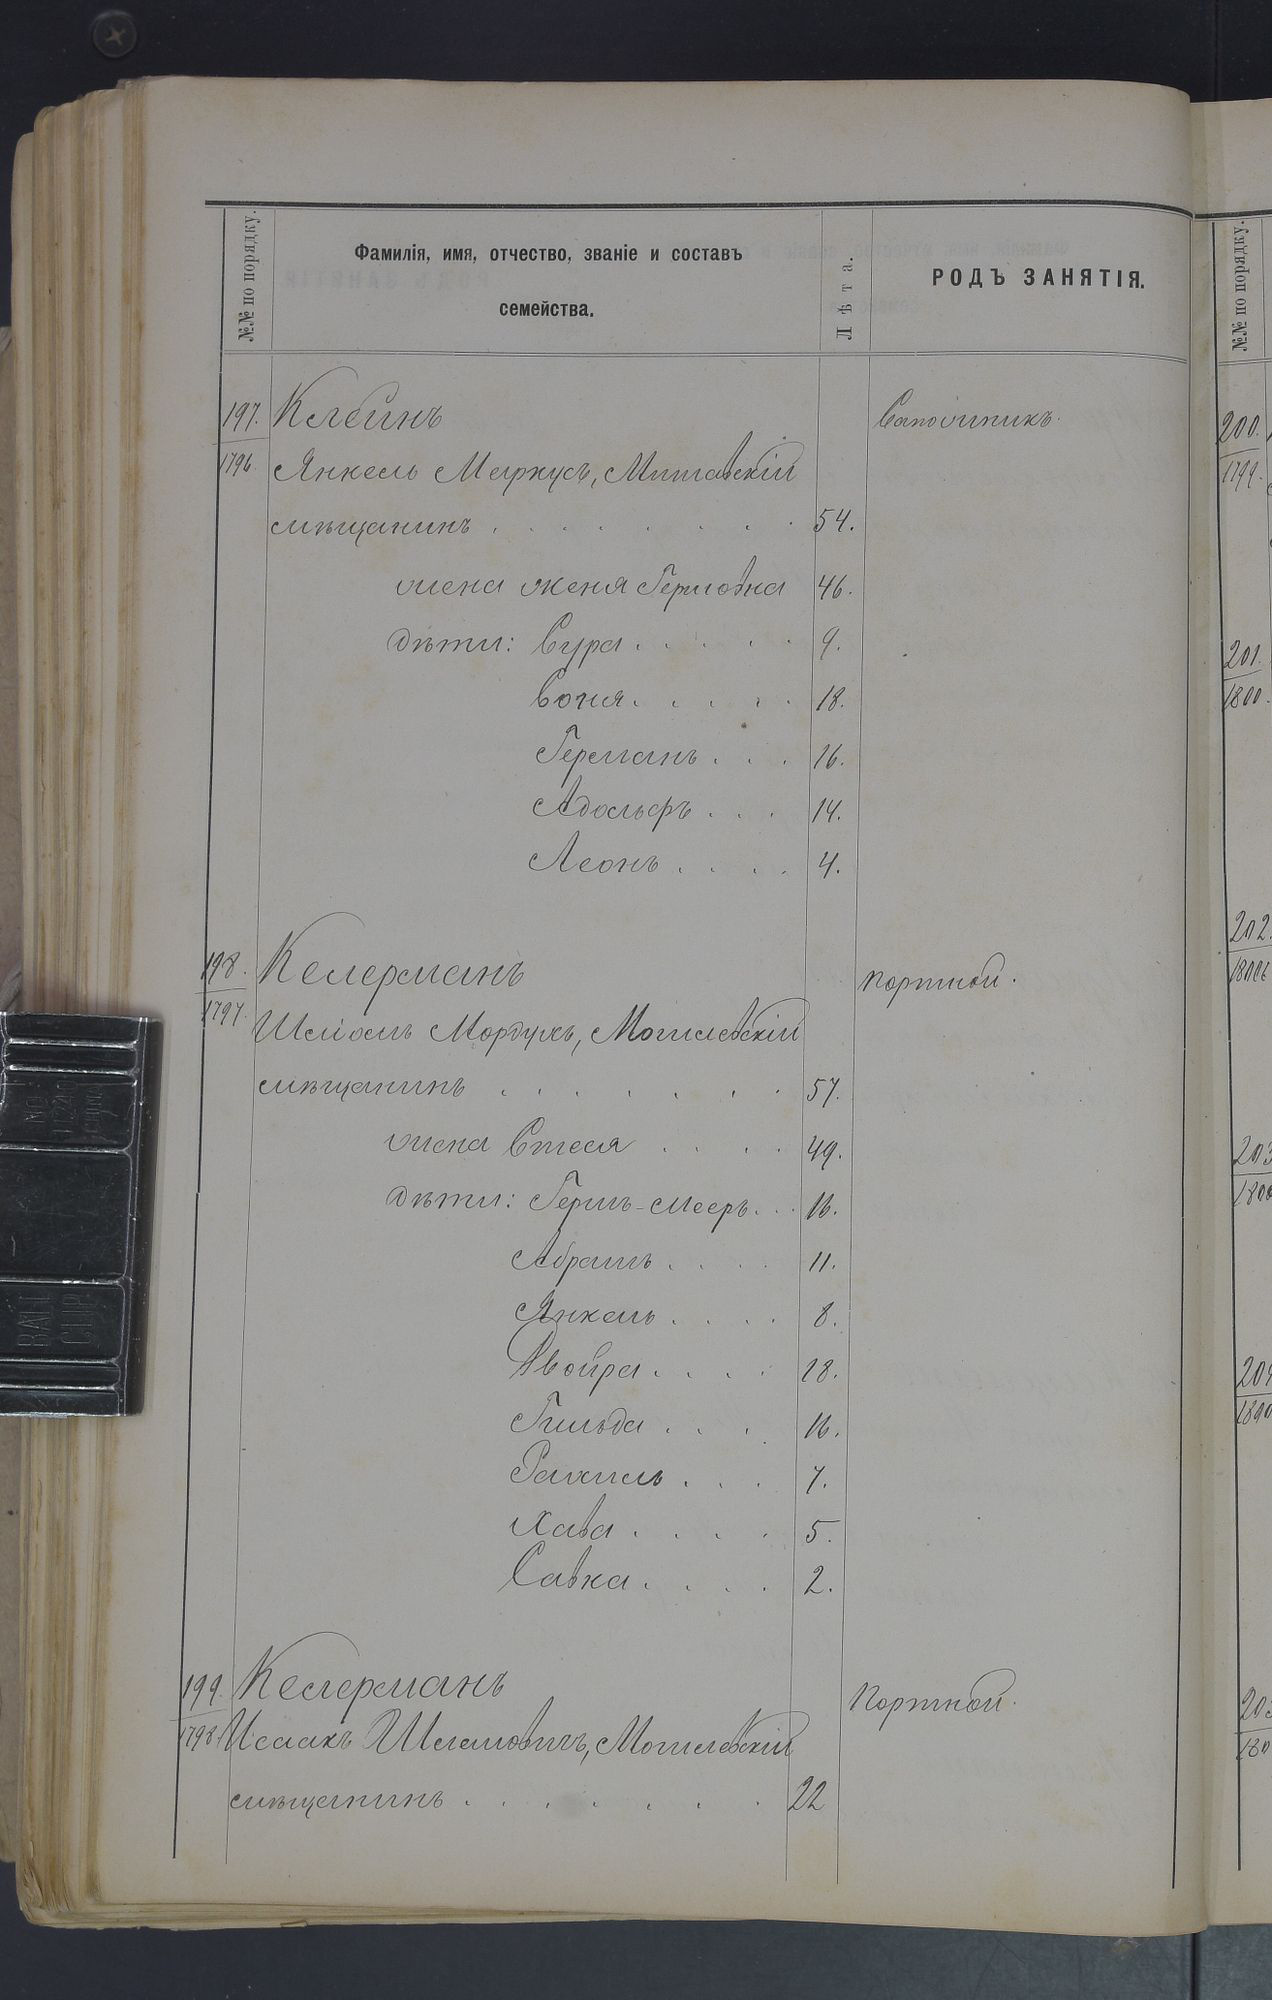 №№ по порядку.
Фамилія, имя, отчество, званіе и составъ
семейства.
Лѣта.
РОДЪ ЗАНЯТІЯ.
№№ по порядку.
197. Клейнъ Сапожникъ.
1796. Янкель Меркусъ, Митавскій
мѣщанинъ . . . . . . . 54.
жена Женя Гершовна 46.
дѣти: Сура . . . . . 9.
Соня . . . . . 18.
Германъ . . . 16.
Адольфъ . . . 14.
Леонъ . . . . 4.
198. Келерманъ портной.
1797. Шліомъ Мордухъ, Могилевскій
мѣщанинъ . . . . . . . 57.
жена Стеся . . . . 49.
дѣти: Гершъ-Мееръ . . 16.
Абрамъ . . . . 11.
Янкель . . . . 8.
Двойра . . . . 18.
Гильда . . . 16.
Рахиль . . . 7.
Хава . . . . 5.
Савка . . . . 2.
199. Келерманъ портной.
1798. Исаакъ Шлемовичъ, Могилевскій
мѣщанинъ . . . . . . . 22
200.
1799.
201.
1800.
202.
203
204
NO
BALL
CLIP